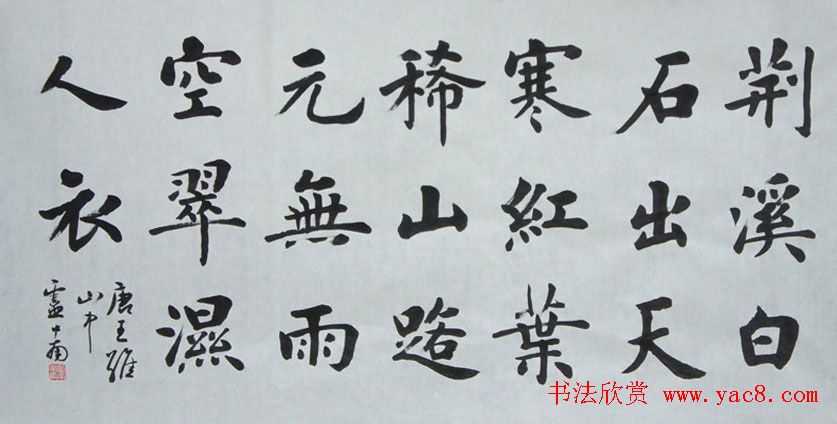 荆溪白
石出天
寒紅葉
稀山路
元無雨
空翠濕
人衣
唐王維
山中
書法欣赏 www.yac8.com